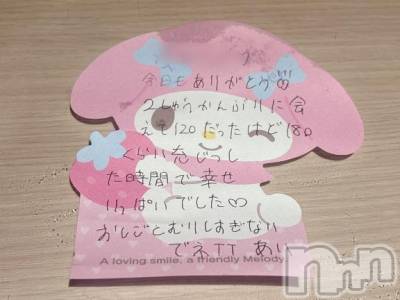 今日もありがとう
2しゅうかんぶりに会
えて120だったけど180
くらい充じつし
た時間で幸せ
いっぱいでした♡
おしごとむりしすぎない
でネTT あい
A loving smile, a friendly Melody